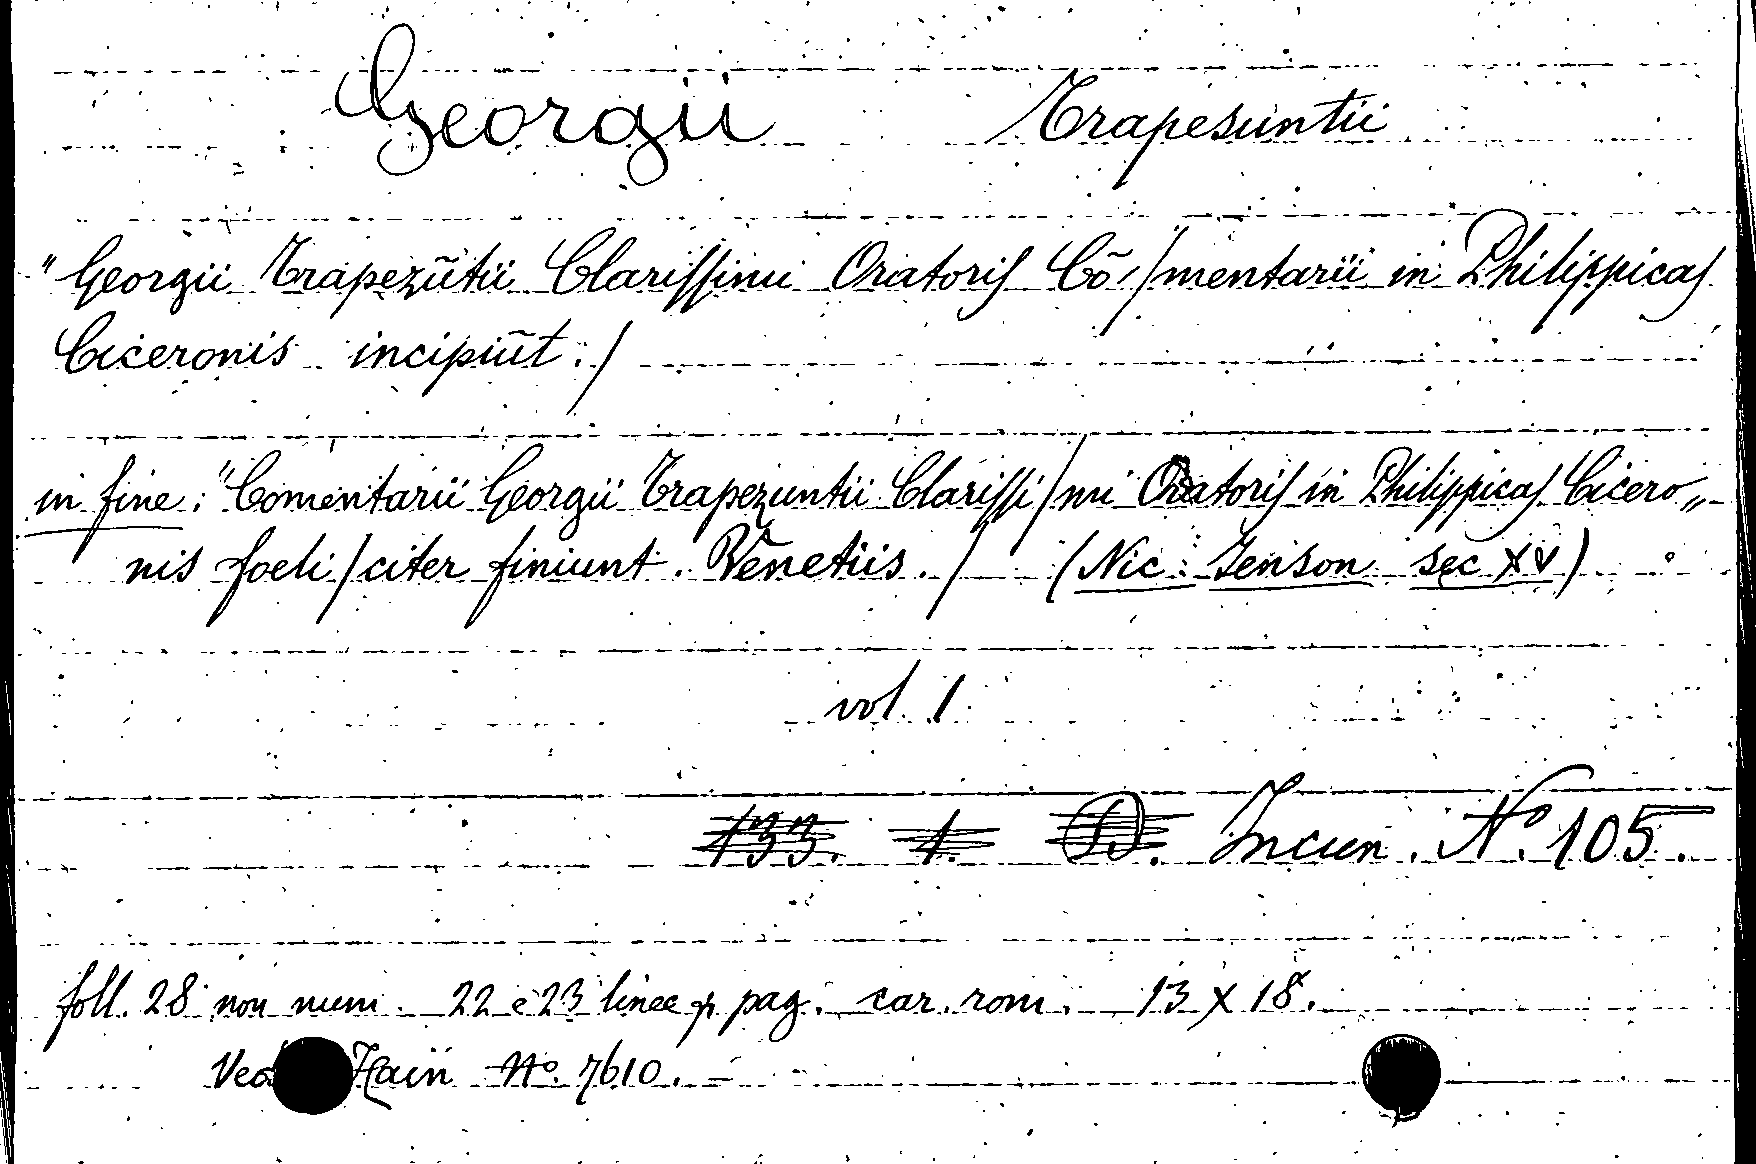 Georgii Trapesuntii
"Georgii Trapezũtii Clariſſimi Oratoriſ Cõ-/mentarii in Philippicaſ
Ciceronis incipiũt:/
in fine: "Comentarii Georgii Trapezuntii Clariſſi/mi Oratoriſ in Philippicaſ Cicero„
nis foeli/citer finiunt. Venetiis./ (Nic: Jenson sec XV)
vol. 1
133. 1. D. Incun. Nº. 105.
foll. 28 non num. 22 e 23 linee p. pag. car. rom. 13 x 18.
Ved Hain Nº. 7610.